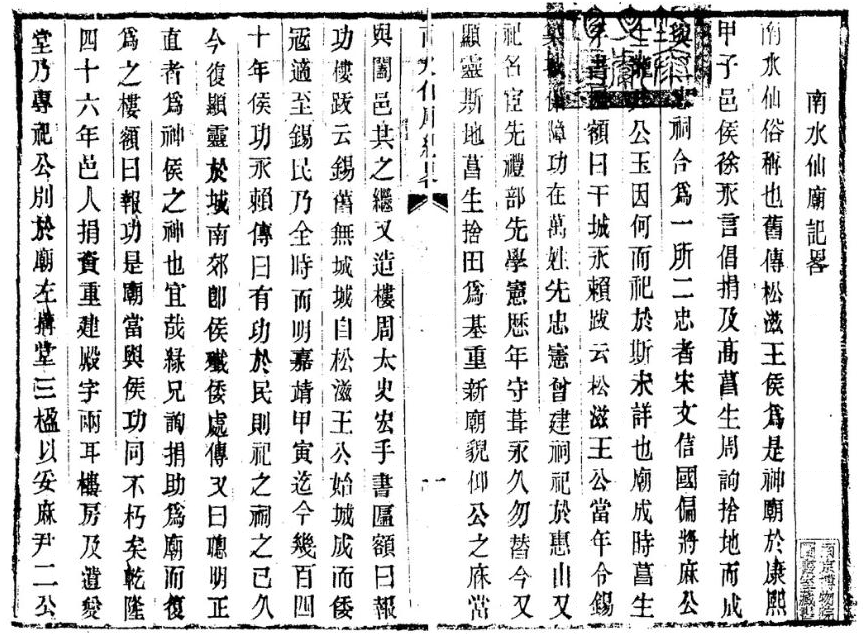 南水仙廟記畧
南水仙俗稱也舊傳松滋王侯爲是神廟於康熙
甲子邑侯徐永言倡捐及高菖生周詢捨地而成
祠合爲一所二忠者宋文信國偏將麻公
公玉因何而祀於斯未詳也廟成時菖生
書額曰干城永賴跋云松滋王公當年令錫
障功在萬姓先忠憲曾建祠祀於惠山又
祀名宦先禮部先學憲歷年守葺永久勿替今又
顯靈斯地菖生捨田爲基重新廟貌仰公之庥當
與闔邑共之繼又造樓周太史宏手書匾額曰報
功樓跋云錫舊無城城自松滋王公始城成而倭
寇適至錫民乃全時而明嘉靖甲寅迄今幾百四
十年侯功永賴傳曰有功於民則祀之祠之已久
今復顯靈於城南郊卽侯殲倭處傳又曰聰明正
直者爲神侯之神也宜哉緣兄詢捐助爲廟而復
爲之樓額曰報功是廟當與侯功同不朽矣乾隆
四十六年邑人捐資重建殿宇兩耳樓房及遺愛
堂乃專祀公別於廟左搆堂三楹以妥麻尹二公
南京博物院